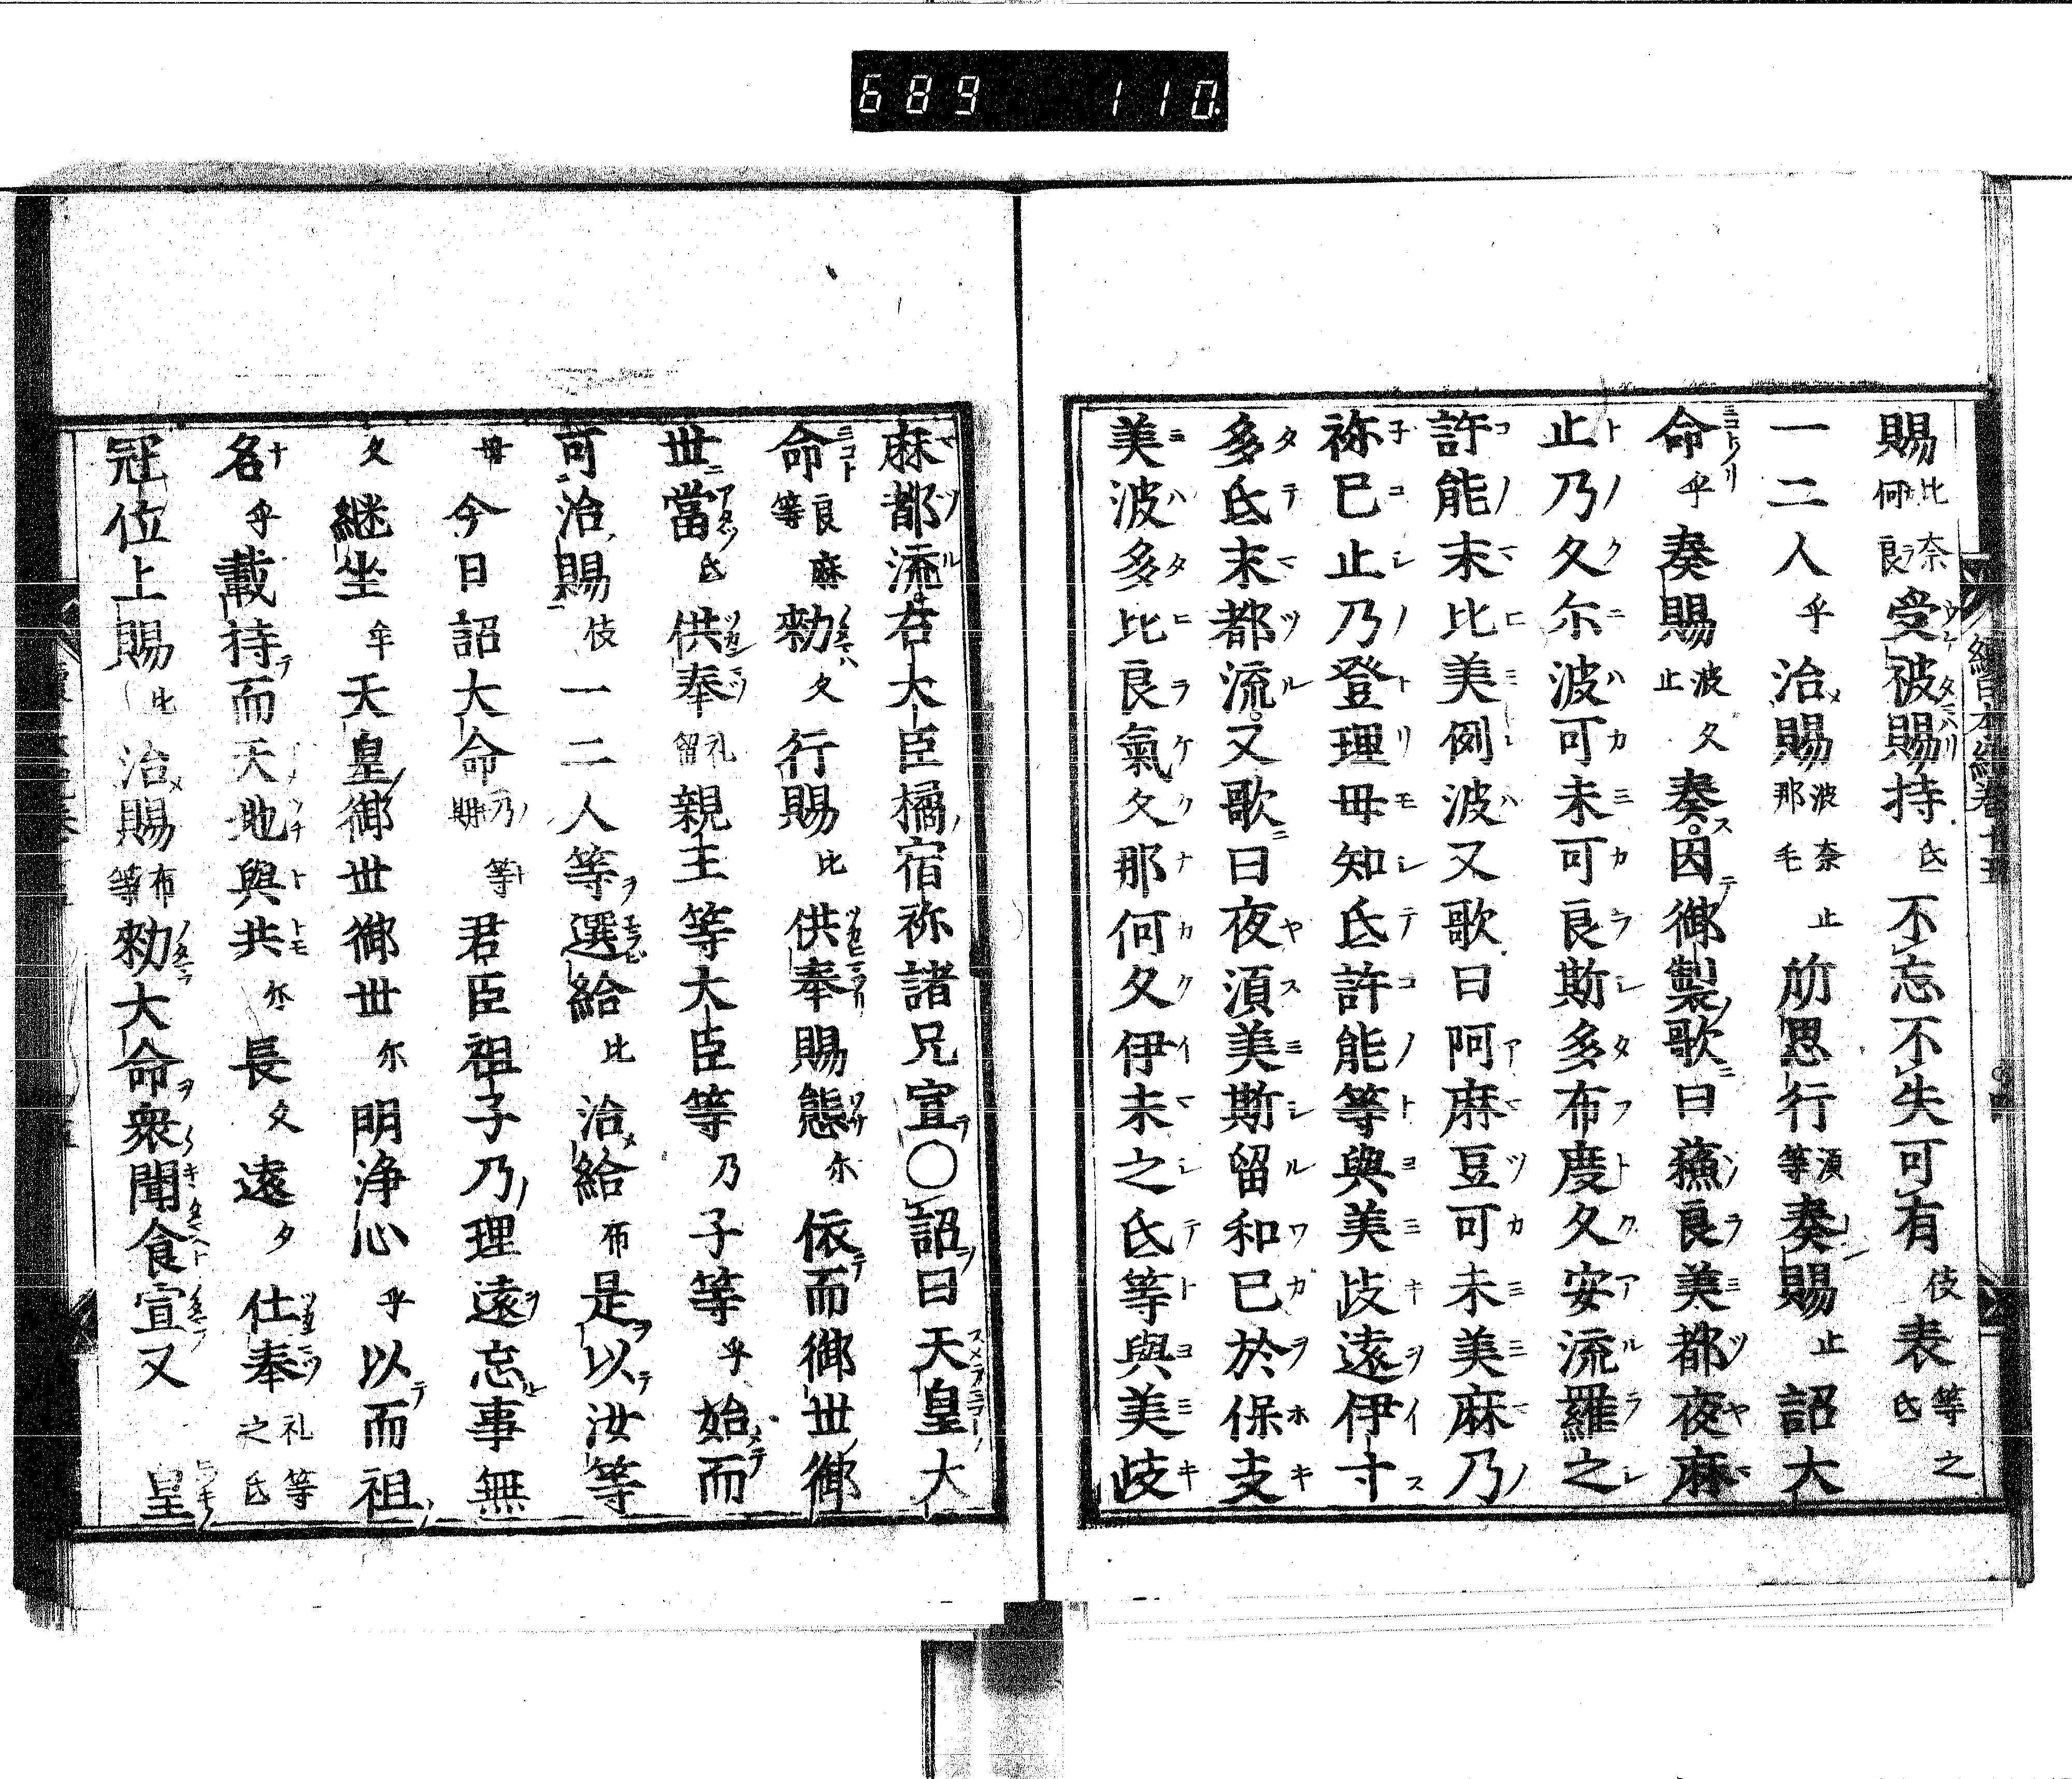 689 110
賜比何奈良受被賜持氐不忘不失可有伎表等氐之
一二人乎治賜波那奈毛止所思行須等奏賜止詔大
命乎奏賜波止久奏。因御製歌曰蘓良美都夜麻
止乃久尓波可未可良斯多布度久安流羅之
許能末比美例波又歌曰阿麻豆可未美麻乃
祢己止乃登理母知氐許能等與美岐遠伊寸
多氐末都流。又歌曰夜須美斯留和己於保支
美波多比良氣久那何久伊末之氐等與美岐
麻都流。右大臣橘宿祢諸兄宣○詔曰天皇大
命良等麻勅久行賜比供奉賜態尓依而御世御
世當氐供奉礼留親王等大臣等乃子等乎始而
可治賜伎一二人等選給比治給布是以汝等
母今日詔大命乃期等君臣祖子乃理遠忘事無
久継坐牟天皇御世御世尓明浄心乎以而祖
名乎戴持而天地與共尓長久遠夕仕奉礼之等氐
冠位上賜比治賜布等勅大命衆聞食宣又 皇